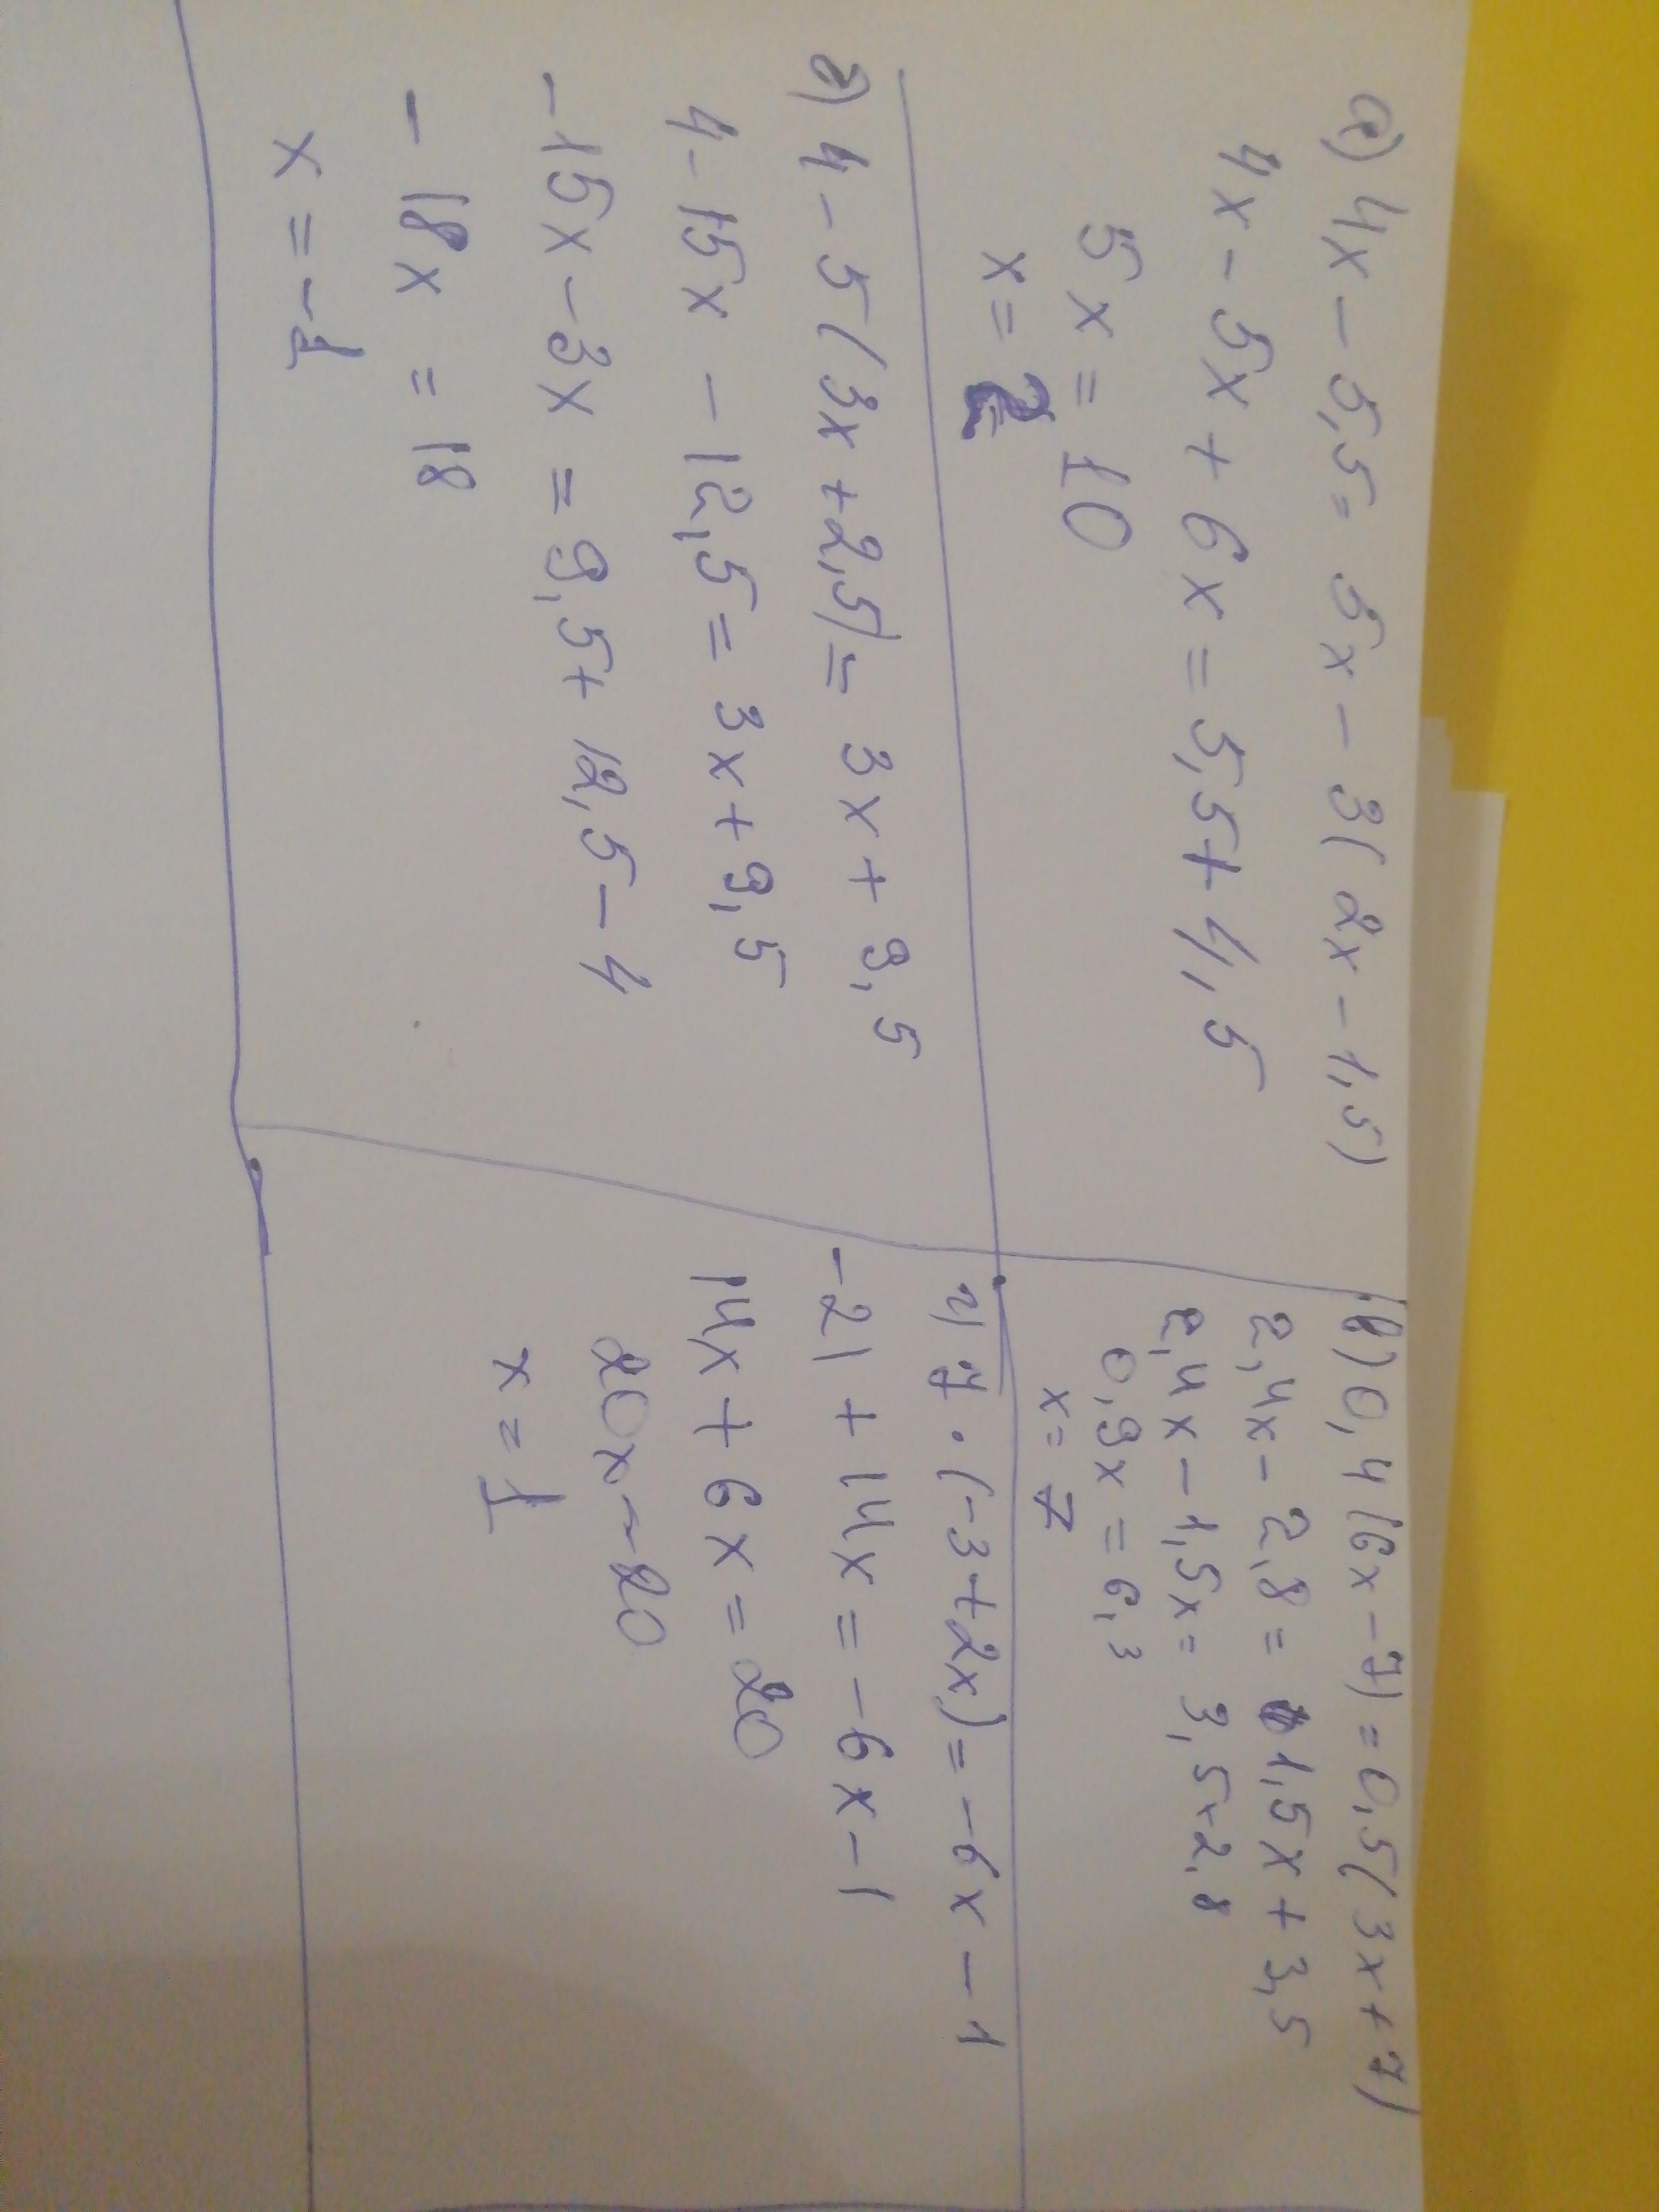 а) 4x - 5,5 = 5x - 3(2x - 1,5)
4x - 5x + 6x = 5,5 + 4,5
5x = 10
x = 2
б) 4 - 5(3x + 2,5) = 3x + 9,5
4 - 15x - 12,5 = 3x + 9,5
-15x - 3x = 9,5 + 12,5 - 4
- 18x = 18
x = -1
в) 0,4(6x - 7) = 0,5(3x + 7)
2,4x - 2,8 = 1,5x + 3,5
2,4x - 1,5x = 3,5+2,8
0,9x = 6,3
x = 7
г) 7 · (-3 + 2x) = -6x - 1
-21 + 14x = -6x - 1
14x + 6x = 20
20x = 20
x = 1